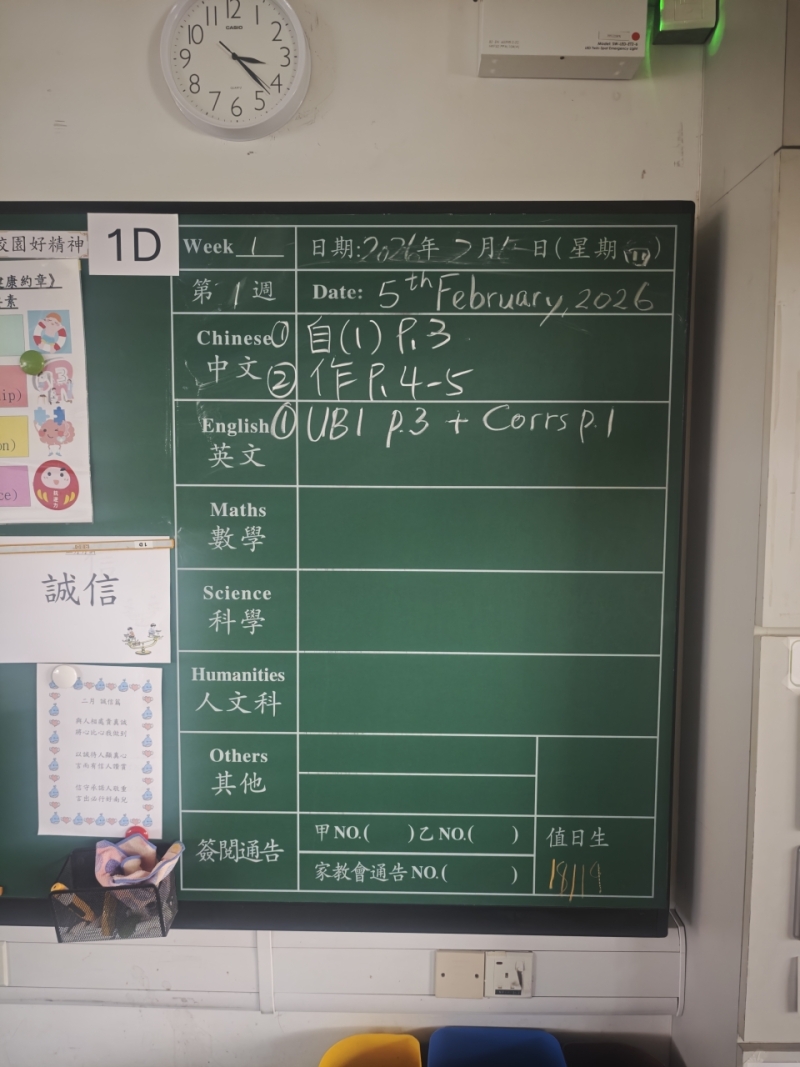 12
1
2
3
4
5
6
7
8
9
10
11
CASIO
校園好精神
1D
Week 1
日期:2026年2月5日(星期四)
第1週
Date: 5th February, 2026
Chinese ① 自(1) P.3
中文 ② 作 P.4-5
English ① UB1 p.3 + Corrs p.1
英文
Maths
數學
Science
科學
Humanities
人文科
Others
其他
簽閱通告
甲NO.( )乙NO.( )
家教會通告NO.( )
值日生
18/19
誠信
二月 誠信篇